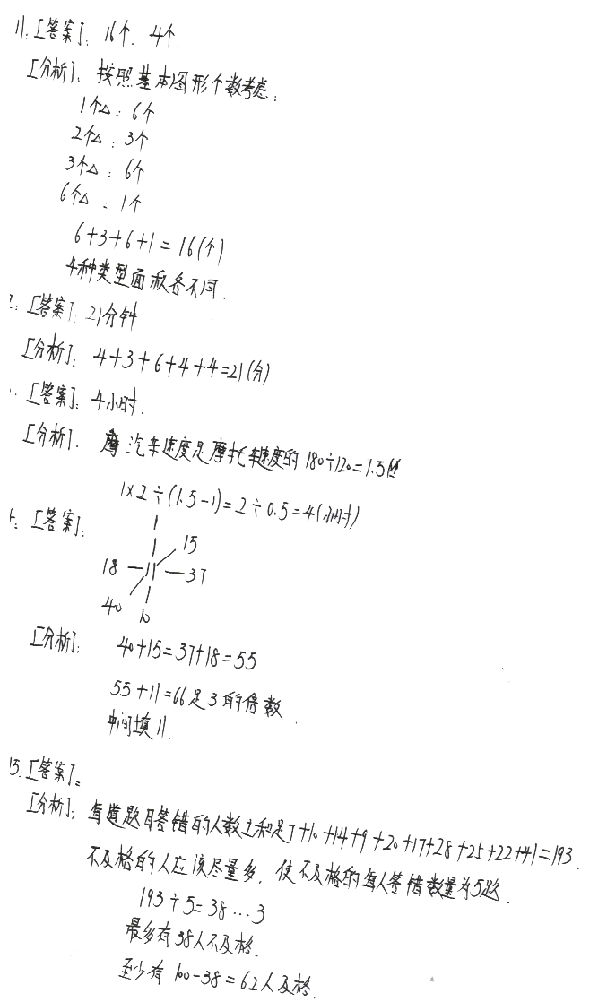 11.[答案]: 16个. 4个
[分析]: 按照基本图形个数考虑:
1个△: 6个
2个△: 3个
3个△: 6个
6个△ - 1个
6+3+6+1=16(个)
4种类型面积各不同.
2: [答案]: 21分钟
[分析]: 4+3+6+4+4=21(分)
[答案]: 4小时.
[分析]. 汽车速度是摩托车速度的180÷120=1.5倍
1×2÷(1.5-1)=2÷0.5=4(小时)
[答案]:
1 15
18 11 37
40 10
[分析]: 40+15=37+18=55
55+11=66是3的倍数
中间填11.
15.[答案]:
[分析]: 每道题目答错的人数之和是7+10+14+9+20+17+28+25+22+41=193.
不及格的人应该尽量多, 使不及格的每人答错数量为5路.
193÷5=38…3
最多有38人不及格.
至少有100-38=62人及格.